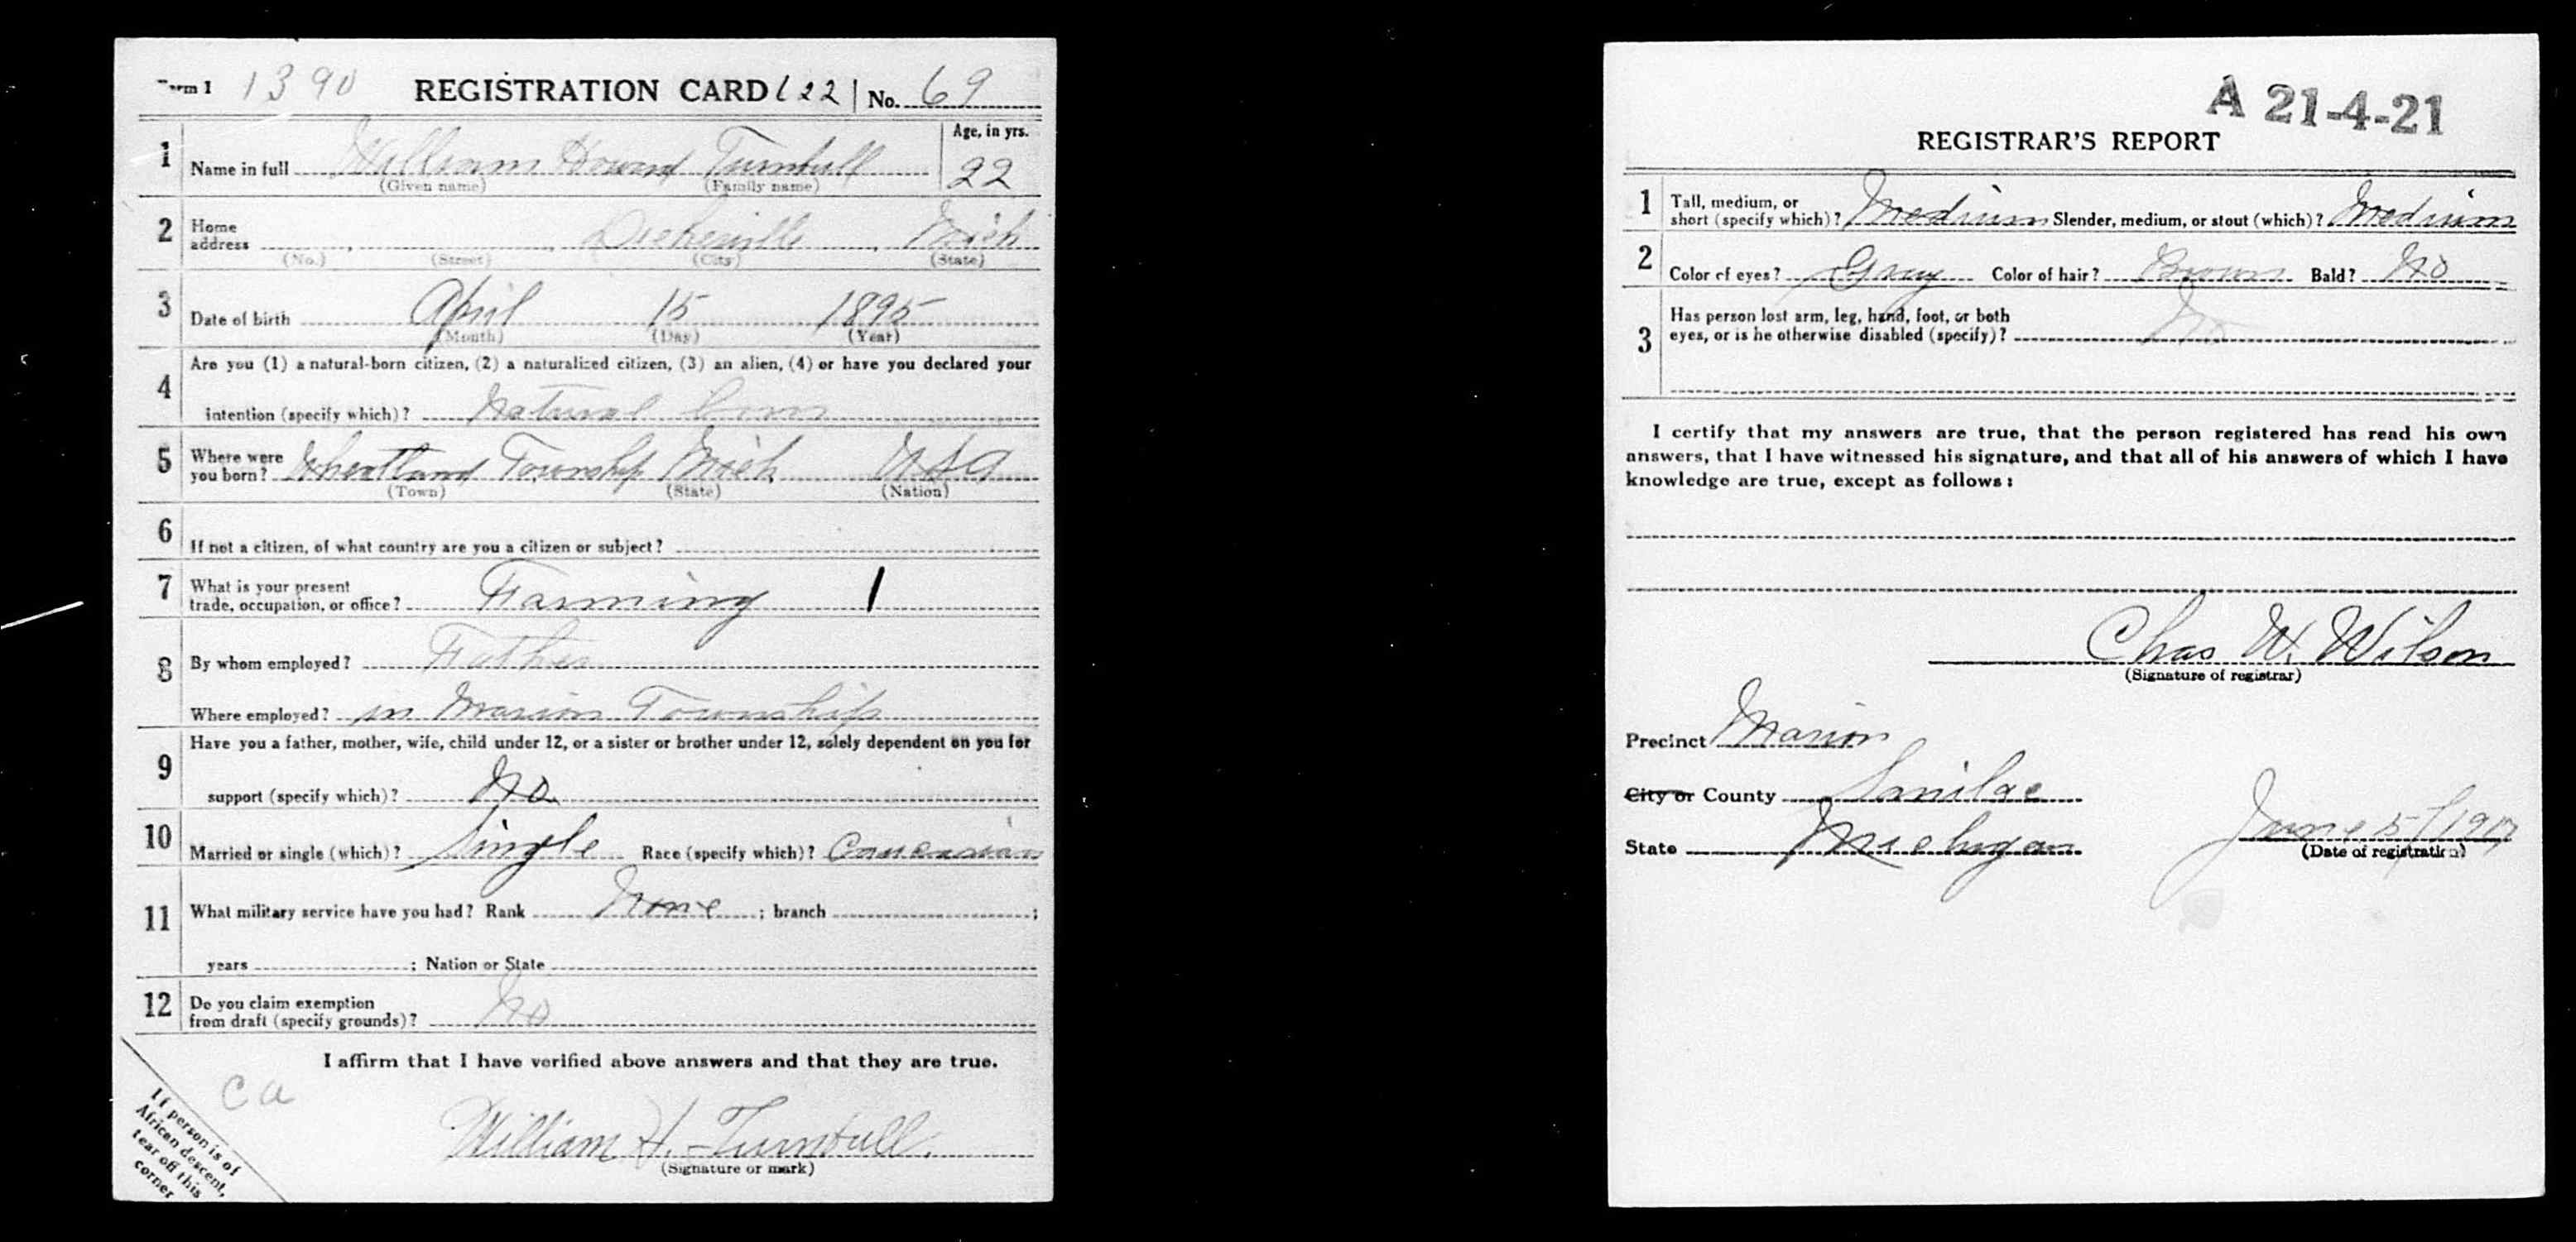 Form 1 1390 REGISTRATION CARD 122 No. 69
1 Name in full William Howard Turnbull Age, in yrs. 22
(Given name) (Family name)
2 Home address Deckerville, Mich
(No.) (Street) (City) (State)
3 Date of birth April 15 1895
(Month) (Day) (Year)
4 Are you (1) a natural-born citizen, (2) a naturalized citizen, (3) an alien, (4) or have you declared your
intention (specify which)? Natural born
5 Where were you born? Wheatland Township Mich USA
(Town) (State) (Nation)
6 If not a citizen, of what country are you a citizen or subject?
7 What is your present
trade, occupation, or office? Farming 1
8 By whom employed? Father
Where employed? in Marion Township
9 Have you a father, mother, wife, child under 12, or a sister or brother under 12, solely dependent on you for
support (specify which)? No
10 Married or single (which)? Single Race (specify which)? Caucasian
11 What military service have you had? Rank None ; branch ;
years ; Nation or State
12 Do you claim exemption
from draft (specify grounds)? No
I affirm that I have verified above answers and that they are true.
ca
William H. Turnbull.
(Signature or mark)
If person is of
African descent,
tear off this
corner
A 21-4-21
REGISTRAR'S REPORT
1 Tall, medium, or
short (specify which)? Medium Slender, medium, or stout (which)? Medium
2 Color of eyes? Gray Color of hair? Brown Bald? No
3 Has person lost arm, leg, hand, foot, or both
eyes, or is he otherwise disabled (specify)? No
I certify that my answers are true, that the person registered has read his own
answers, that I have witnessed his signature, and that all of his answers of which I have
knowledge are true, except as follows:
Chas W. Wilson
(Signature of registrar)
Precinct Marion
City or County Sanilac
State Michigan June 5/1917
(Date of registration)